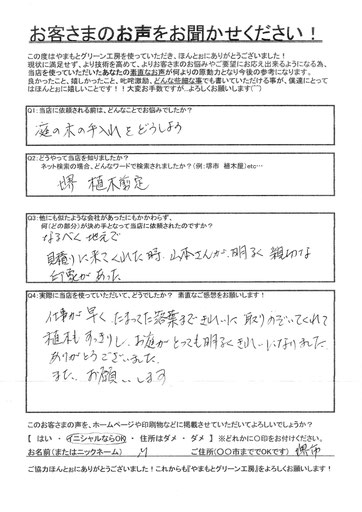 お客さまのお声をお聞かせください！
この度はやまもとグリーン工房を使っていただき、ほんとぉにありがとうございました！
現状に満足せず、より技術を高めて、よりお客さまのお悩みやご要望にお応え出来るようになる為、
当店を使っていただいたあなたの素直なお声が何よりの原動力となり今後の参考になります。
良かったこと、嬉しかったこと、叱咤激励、どんな些細な事でも書いていただける事が、僕達にとって
はほんとぉに嬉しいことです！！大変お手数ですが、よろしくお願いします(^^)
Q1:当店に依頼される前は、どんなことでお悩みでしたか？
庭の木の手入れをどうしよう
Q2:どうやって当店を知りましたか？
ネット検索の場合、どんなワードで検索されましたか？（例：堺市　植木屋）etc…
堺　植木剪定
Q3:他にも似たような会社があったにもかかわらず、
何（どの部分）が決め手となって当店に依頼されたのですか？
なるべく地元で
見積りに来てくれた時、山本さんが、明るく親切な
印象があった
Q4:実際に当店を使っていただいて、どうでしたか？　素直なご感想をお願いします！
仕事が早く、たまってた落葉まできれいに取りのぞいてくれて
植木もすっきりし、お庭がとっても明るくきれいになりました
ありがとうございました。
また、お願いします
このお客さまの声を、ホームページや印刷物などに掲載させていただいてよろしいでしょうか？
【　はい　・　イニシャルならOK　・　住所はダメ　・　ダメ　】　※どれかに〇印をお付けください。
お名前（またはニックネーム）　　M　　ご住所（〇〇市まででOKです）　堺市
ご協力ほんとぉにありがとうございました！これからも『やまもとグリーン工房』をよろしくお願いします！